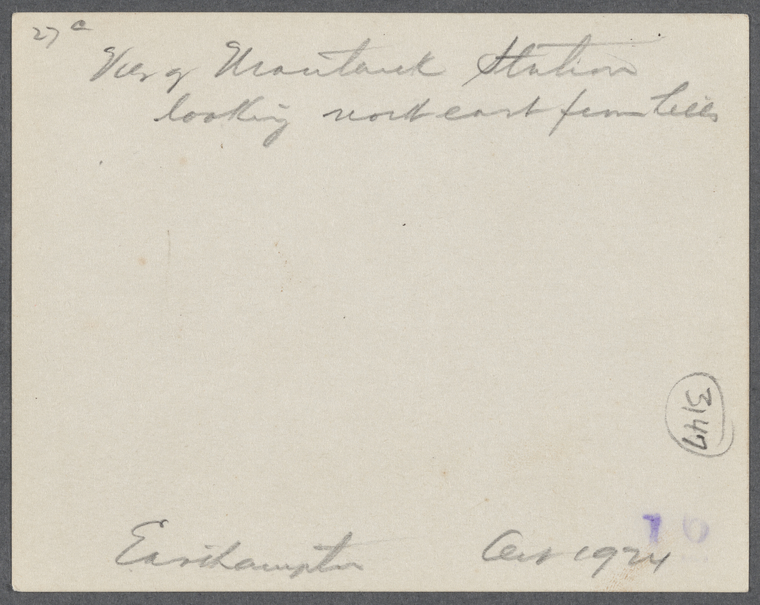 27c
View of Montauk Station
looking north east from hills
3147
16
Easthampton Oct 1924